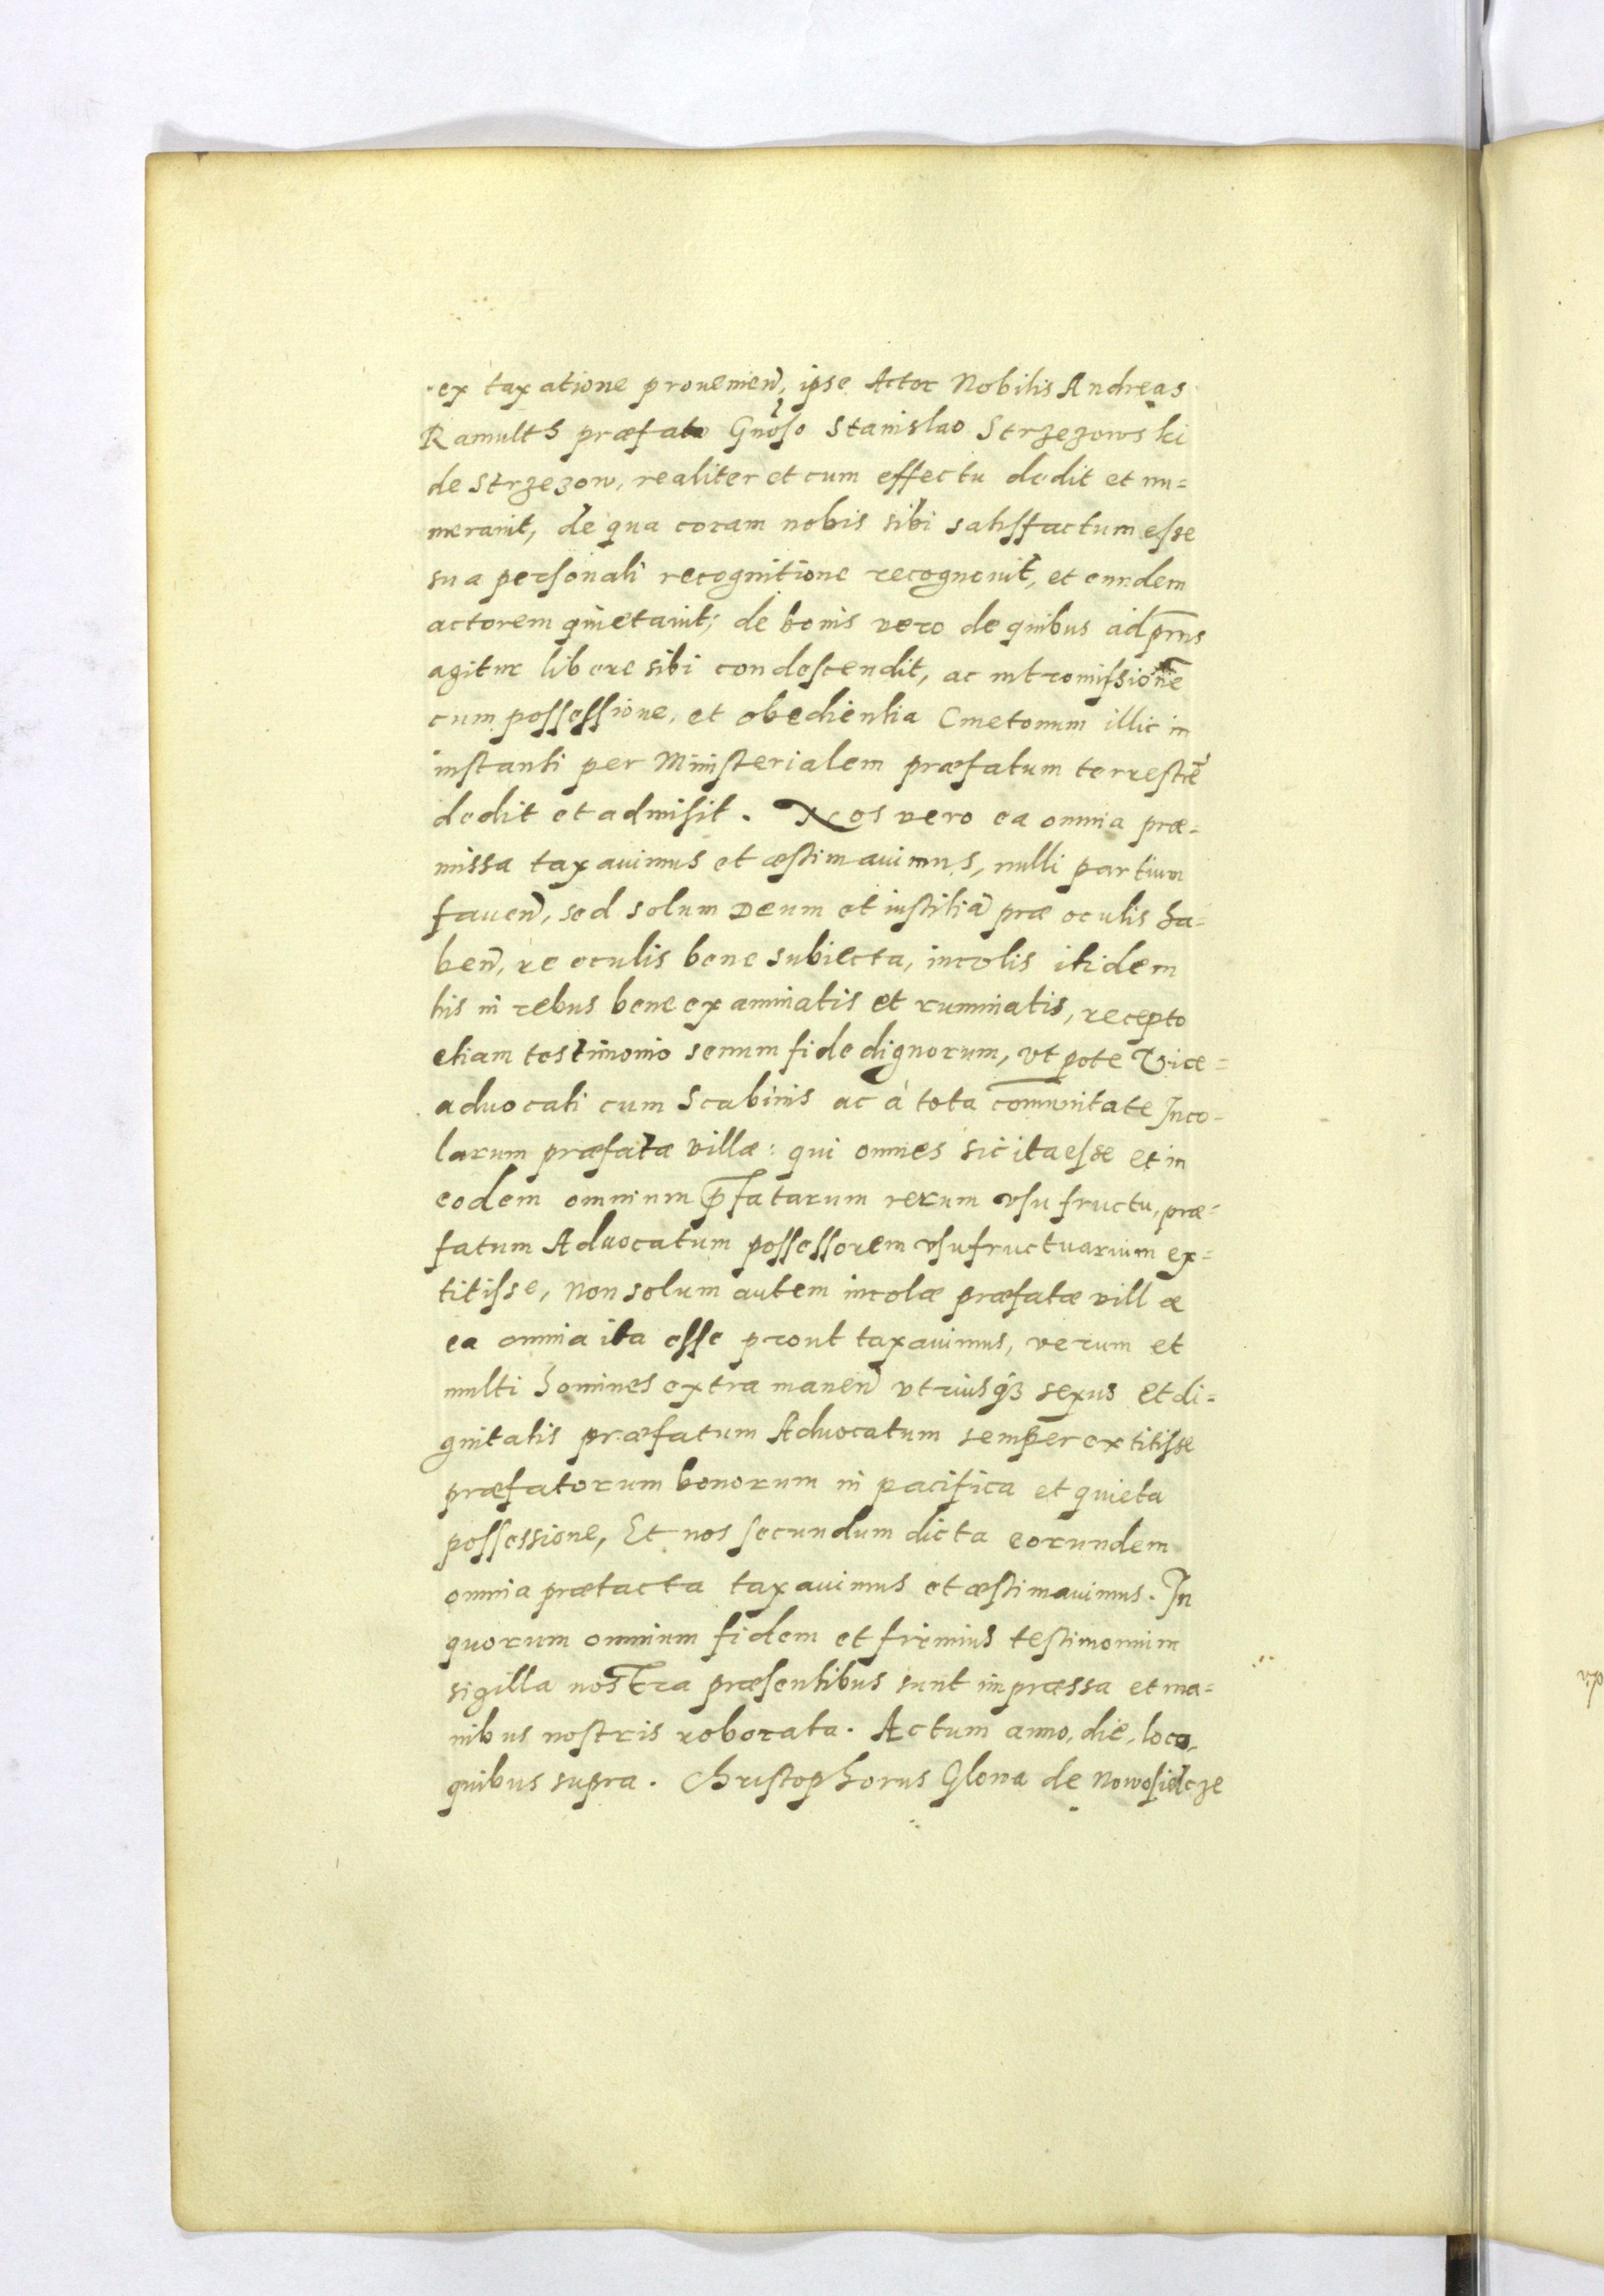 ex taxatione prouenieñ, ipse Actor Nobilis Andreas
Ramulth præfato Gnoso Stanislao Strzezowski
de Strzezow, realiter et cum effectu dedit et nu=
merauit, de qua coram nobis sibi satisfactum esse
sua personali recognitione recognouit, et eundem
actorem quietauit; de bonis vero de quibus ad prñs
agitur libere sibi condescendit, ac intromissionē
cum possessione, et obedientia Cmetonum illic in
instanti per Ministerialem præfatum terrestrē
dedit et admisit. Nos vero ea omnia præ=
missa taxauimus et æstimauimus, nulli partium
faueñ, sed solum Deum et iustitiā præ oculis ha=
beñ, re oculis bene subiecta, incolis itidem
his in rebus bene examinatis et ruminatis, recepto
etiam testimonio senum fide dignorum, vt pote Vice=
aduocati cum Scabinis ac à tota com̄unitate Inco=
larum præfatæ villæ: qui omnes sic ita esse et in
eodem omnium p̄fatarum rerum vsu fructu, præ=
fatum Aduocatum possessorem vsufructuarium ex=
titisse, Non solum autem incolæ præfatæ villæ
ea omnia ita esse prout taxauimus, verum et
multi homines extra maneñ vtriusqꝫ sexus et di=
gnitatis præfatum Aduocatum semper extitisse
præfatorum bonorum in pacifica et quieta
possessione, Et nos secundum dicta eorundem
omnia prætacta taxauimus et æstimauimus. In
quorum omnium fidem et firmius testimonium
sigilla nostra præsentibus sunt impræssa et ma=
nibus nostris roborata. Actum anno, die, loco,
quibus supra. Christophorus Glowa de Nowosielcze